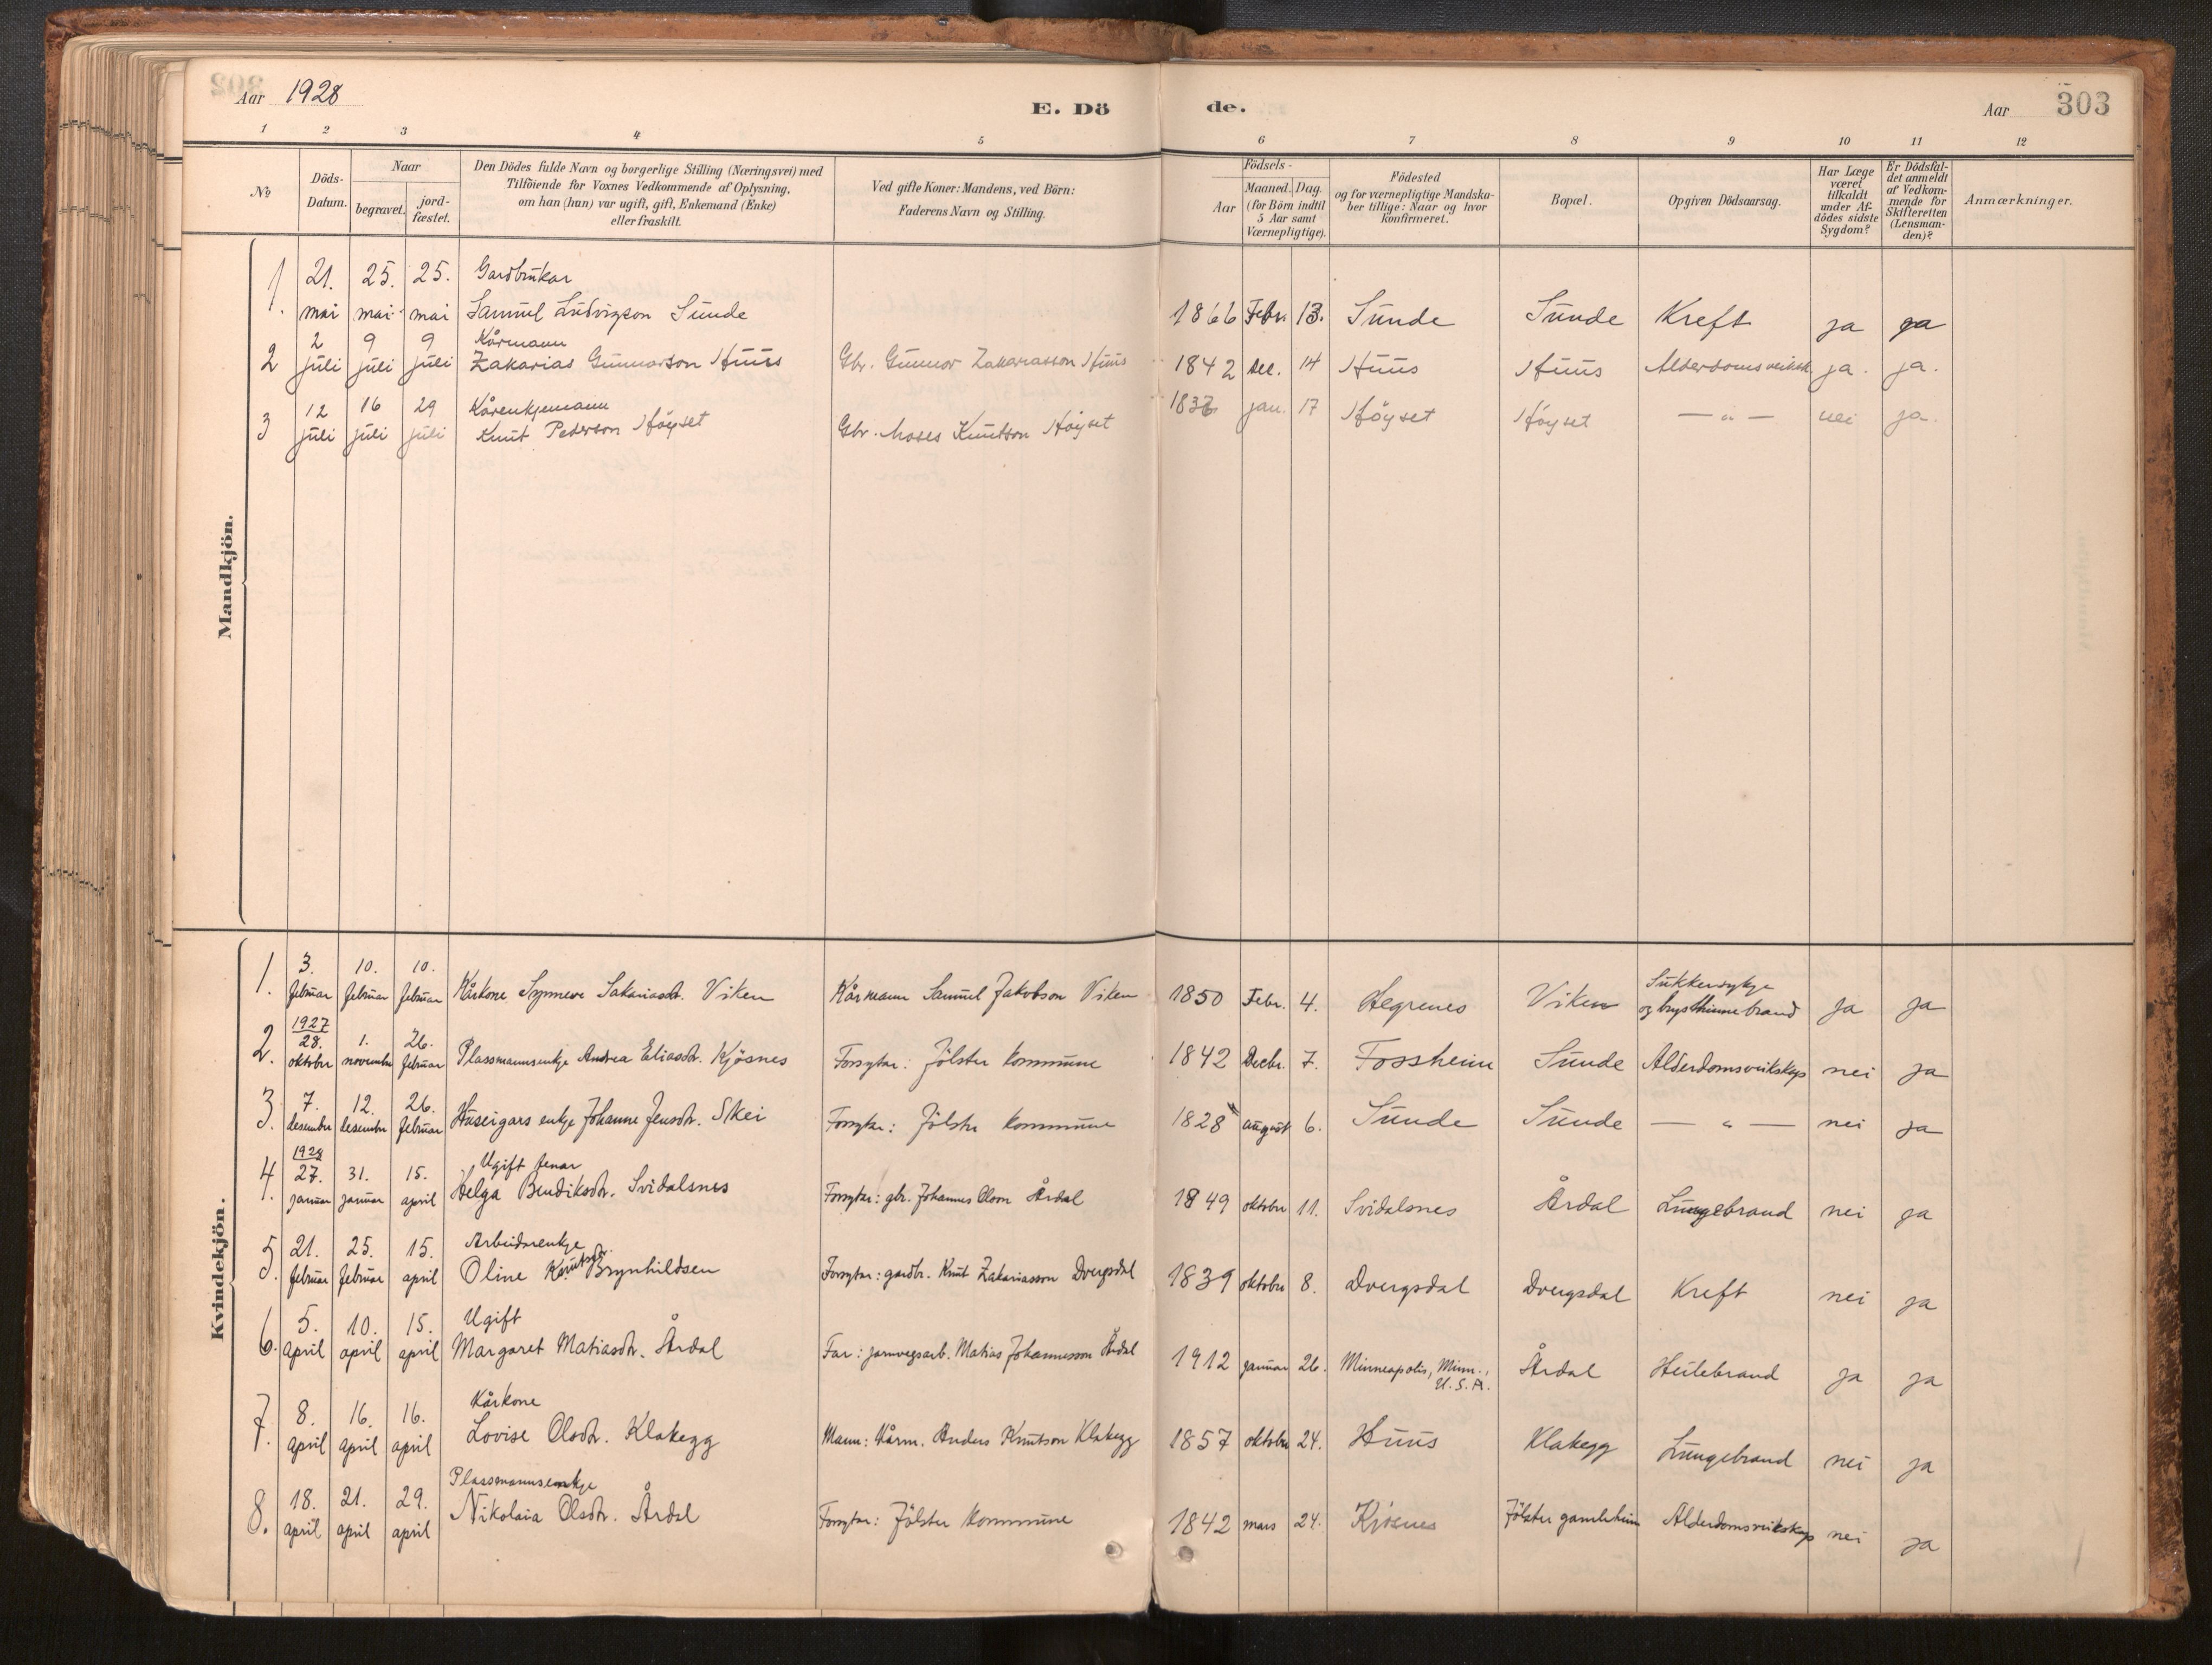 Aar 1928
E. Dö
de.
Aar
303
1 2 3 4 5 6 7 8 9 10 11 12
№
Döds-
Datum.
Naar
begravet.
jord-
fæstet.
Den Dödes fulde Navn og borgerlige Stilling (Næringsvei) med
Tilföiende for Voxnes Vedkommende af Oplysning,
om han (hun) var ugift, gift, Enkemand (Enke)
eller fraskilt.
Ved gifte Koner: Mandens, ved Börn:
Faderens Navn og Stilling.
Födsels-
Aar
Maaned. Dag.
(for Börn indtil
5 Aar samt
Værnepligtige).
Födested
og for værnepligtige Mandska-
ber tillige: Naar og hvor
konfirmeret.
Bopæl.
Opgiven Dödsaarsag.
Har Læge
været
tilkaldt
under Af-
dödes sidste
Sygdom?
Er Dödsfal-
det anmeldt
af Vedkom-
mende for
Skifteretten
(Lensman-
den)?
Anmærkninger.
Mandkjön.
1. 21. 25. 25. Gardbrukar
mai mai mai Samuel Ludvigson Sunde 1866 Febr. 13. Sunde Sunde Kreft ja ja
2 9 9 Kårmann
2 juli juli juli Zakarias Gunnarson Huus Gbr. Gunnar Zakariasson Huus 1842 des. 14 Huus Huus Alderdomsveiksk. ja. ja.
12 16 29 Kårenkjemann
3 juli juli juli Knut Pederson Höyset Gbr. Moses Knutson Höyset jan. 17 Höyset Höyset — " — nei ja.
Kvindekjön.
1. 3. 10. 10. Sukkersykje
februar februar februar Kårkone Synneve Sakariasdtr. Viken Kårmann Samuel Jakobson Viken 1850 Febr. 4. Hegrenes Viken og brysthinnebrand ja ja
1927
2. 28. 1. 26.
oktober november februar Plassmannsenkje Andrea Eliasdtr. Kjösnes Forsytar: Jölster kommune 1842 Decbr. 7. Fossheim Sunde Alderdomsveikskap nei ja
3. 7. 12. 26.
desember desember februar Huseigars enkje Johanne Jensdtr. Skei Forsytar: Jölster kommune 1828 august 6. Sunde Sunde — " — nei ja
1928
4. 27. 31. 15. Ugift tenar
januar januar april Helga Bendiksdtr. Svidalsnes Forsytar: gbr. Johannes Olson Årdal 1849 oktober 11. Svidalsnes Årdal Lungebrand nei ja
5. 21. 25. 15. Arbeidarenkje
februar februar april Oline Knutsdtr. Brynhildsen Forsytar: gardbr. Knut Zakariasson Dvergsdal 1839 oktober 8. Dvergsdal Dvergsdal Kreft nei ja
6. 5. 10. 15. Ugift
april april april Margaret Matiasdtr. Årdal Far: jarnvegsarb. Matias Johannesson Årdal 1912 januar 26. Minneapolis, Minn., Årdal Heilebrand ja ja
U.S.A.
7. 8. 16. 16. Kårkone
april april april Lovise Olsdtr. Klakegg Mann: Kårm. Anders Knutson Klakegg 1857 oktober 24. Huus Klakegg Lungebrand nei ja
8. 18. 21. 29. Plassmannsenkje
april april april Nikolaia Olsdtr. Årdal Forsytar: Jölster kommune 1842 mars 24. Kjösnes Jölster gamleheim Alderdomsveikskap nei ja